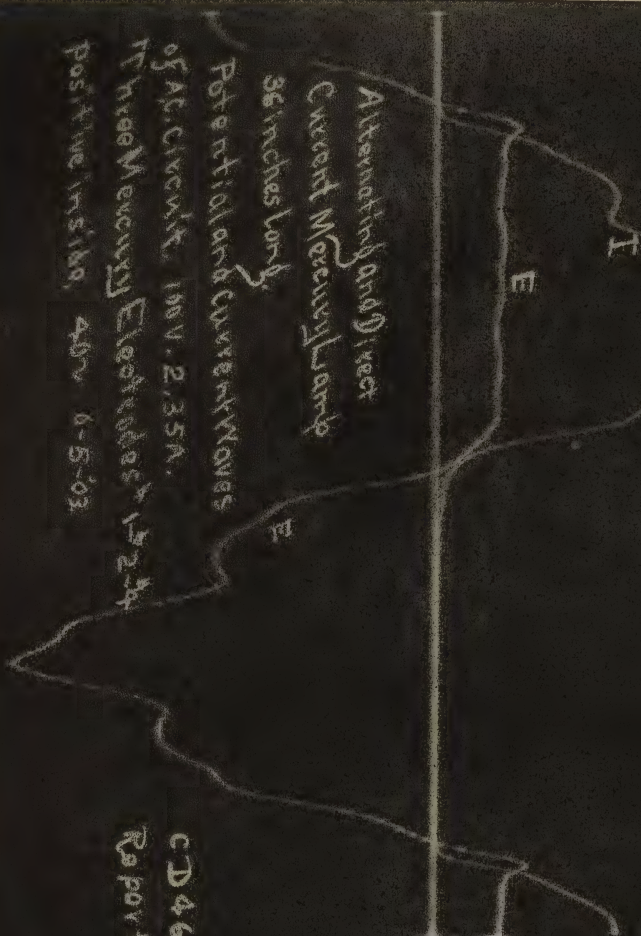 Alternating and Direct
Current Mercury Lamp
36 inches long
Potential and Current Waves
of A.C. Circuit 100V. 2.35A.
Three Mercury Electrodes
positive inside, 6-5-03
I
E
E
CD46
Repor